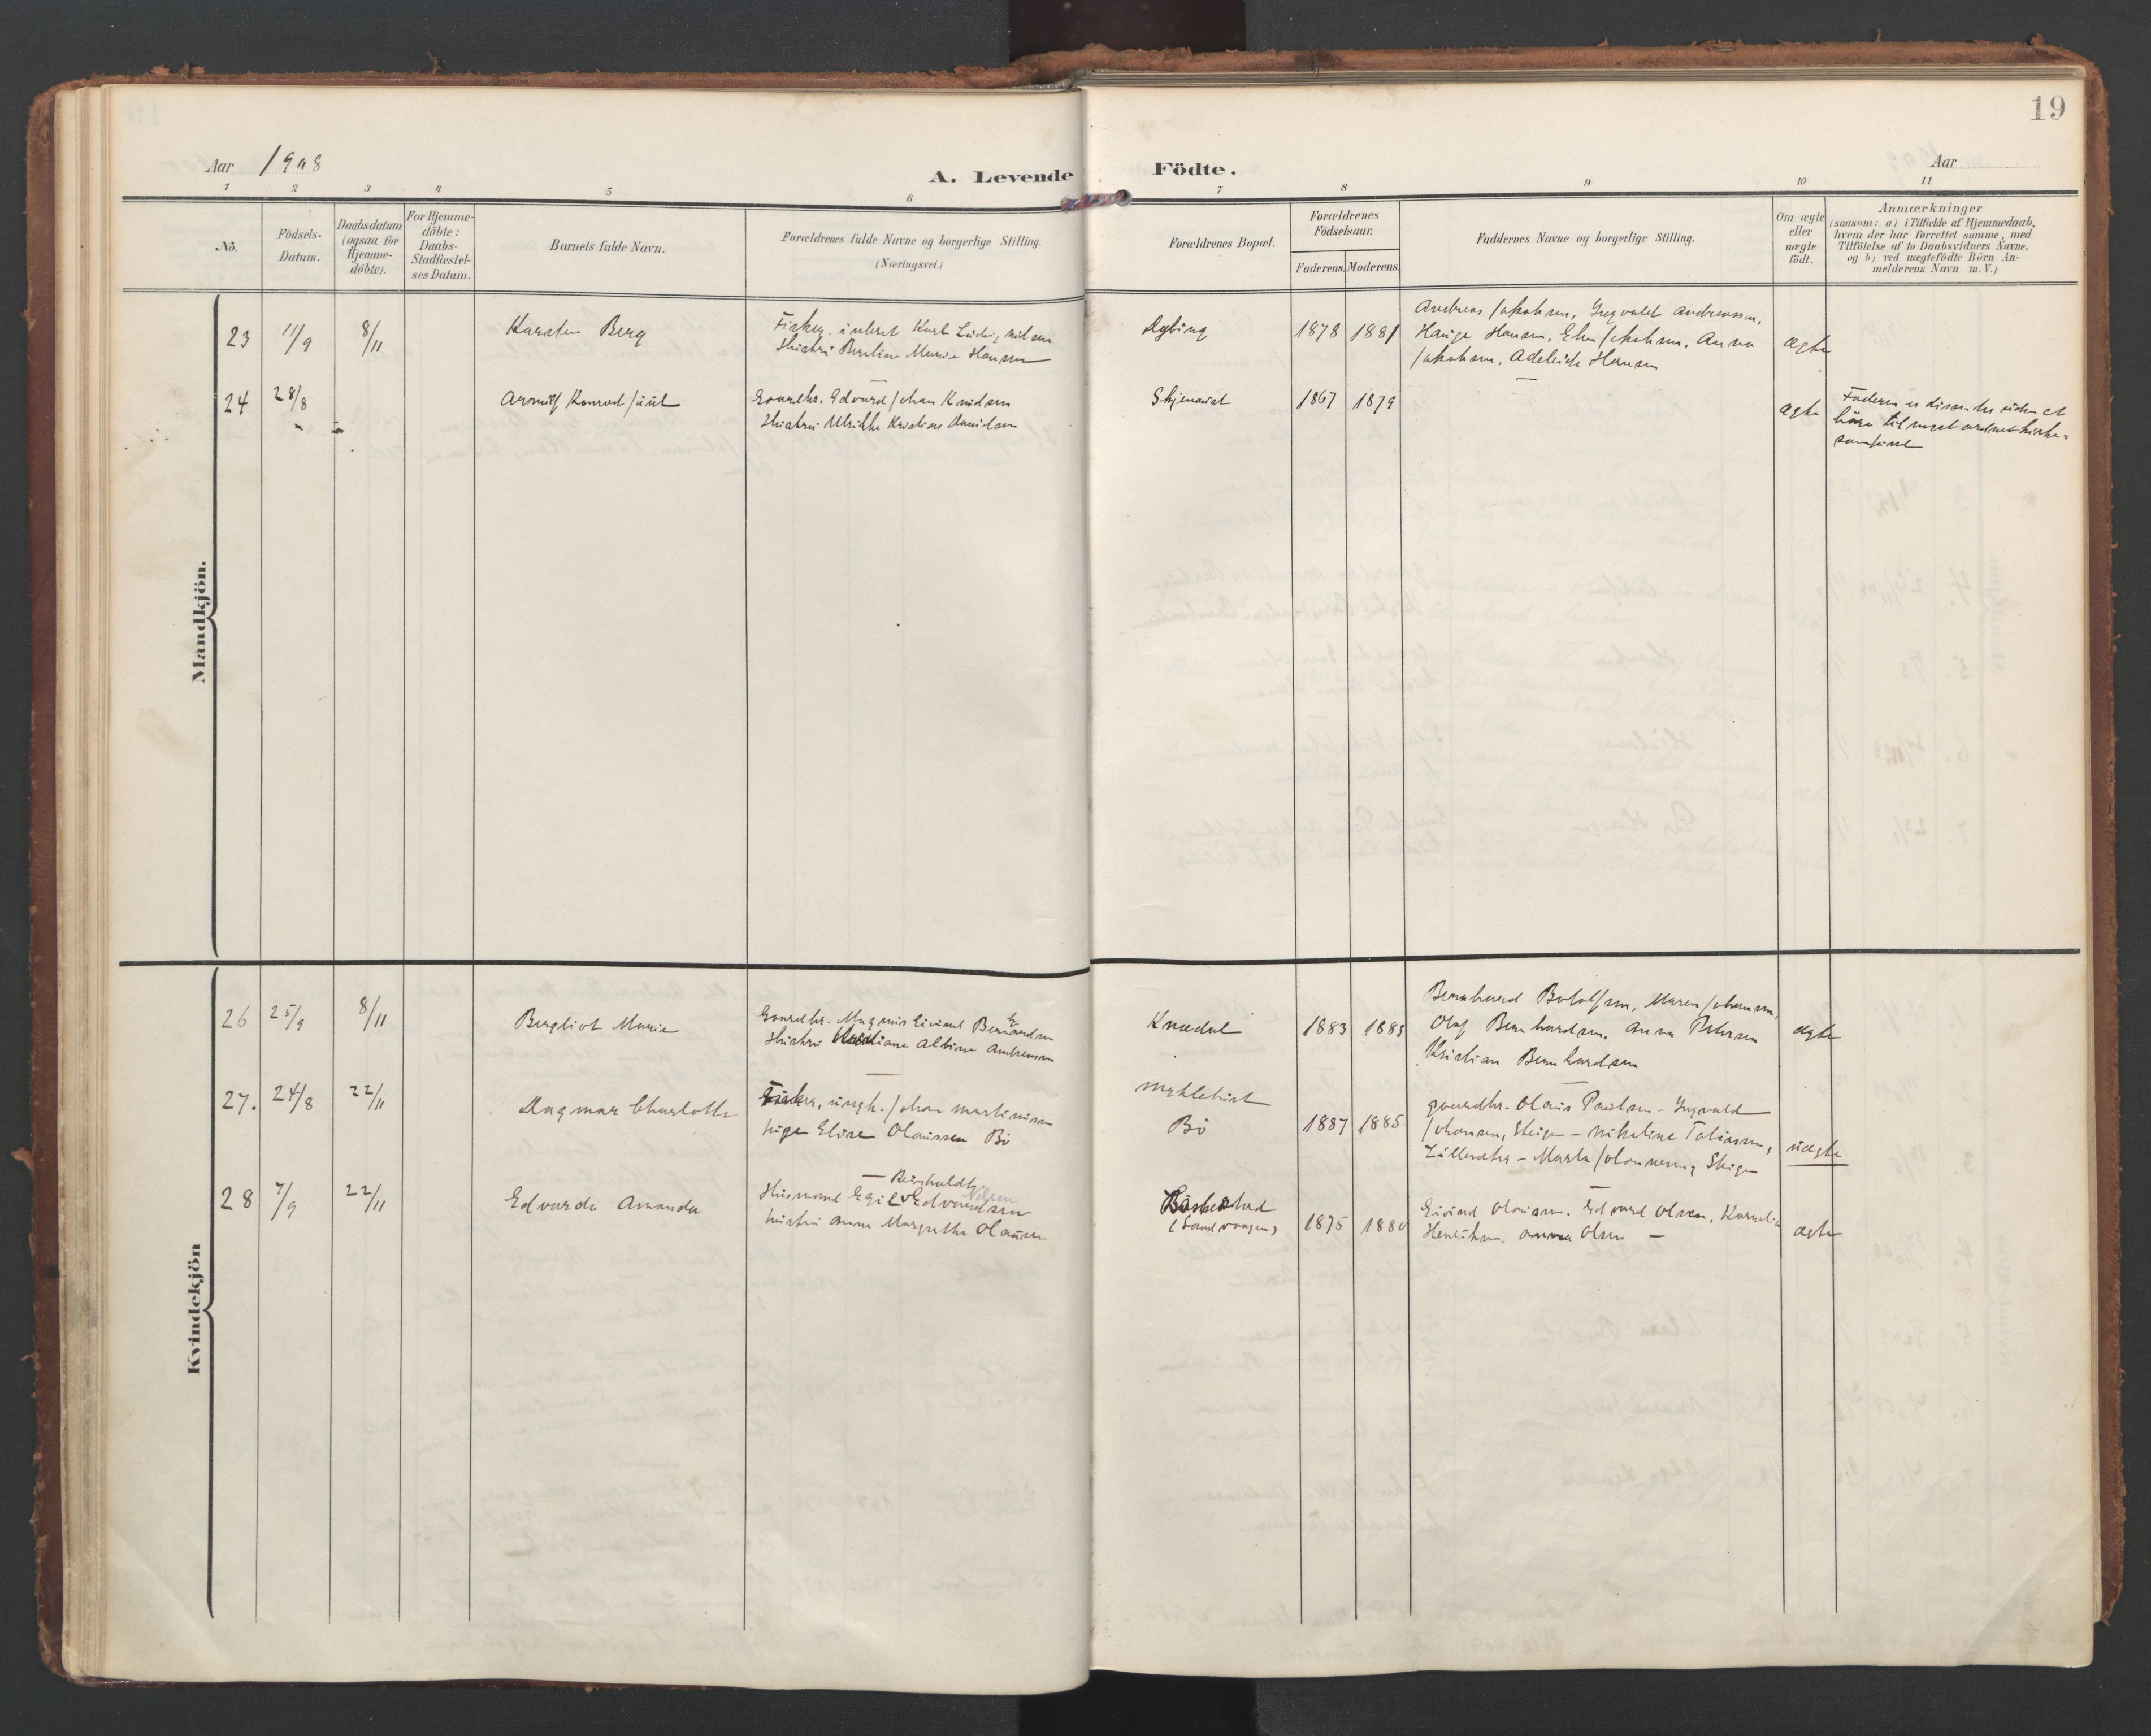 19
Aar 1908
A. Levende Födte.
Aar
1 2 3 4 5 6 7 8 9 10 11
Nö.
Födsels-
Datum.
Daabsdatum
(ogsaa for
Hjemme-
döbte).
For Hjemme-
döbte:
Daabs-
Stadfæstel-
ses Datum.
Barnets fulde Navn.
Forældrenes fulde Navne og borgerlige Stilling.
(Næringsvei.)
Forældrenes Bopæl.
Forældrenes
Födselsaar.
Faderens. Moderens.
Faddernes Navne og borgerlige Stilling.
Om ægte
eller
uægte
födt.
Anmærkninger
(saasom: a) i Tilfælde af Hjemmedaab,
hvem der har forrettet samme, med
Tilföielse af to Daabsvidners Navne.
og b) ved uægtefödte Börn An-
melderens Navn m. V.)
Mandkjön.
23 11/9 8/11 Karsten Berg
Hustru Berlise Marie Hansen
1878 1881
Andreas Jakobsen, Ingvald Andreassen,
Hauge Hansen, Jakobsen, Anna
Jakobsen, Adeleide Hansen
ægte
24 28/8 Konrad Juul
Gaardbr. Edvard Johan Knudsen
Hustru Ulrikke Kristine Danielsen
Skjenaist
1867 1879
ægte
Faderen er dissenter uden at
höre til noget ordnet kirke-
samfund
Kvindekjön
26 25/9 8/11 Bergliot Marie
Gaardbr. Magnus Eivind
Hustru Albine Andreassen
Knædal
1883 1883
Bernhard Botolfsen, Maren Johansen,
Olaf Bernhardsen, Anna Petersen
Kristian Bernhardsen
ægte
27. 24/8 22/11 Dagmar Charlotte
Fisker, ungk. Johan Martinussen
Pige Elise Olaussen Bö
Myklebust
Bö
1887 1885
gaardbr. Olaus Paulsen – Ingvald
Johansen, Steigen – Nikoline Tobiassen,
Marta Steigen
uægte
28 7/9 22/11 Edvarda Amanda
– Reinholdt
Husmand Egil Edvardsen
Nilsen
hustru Anna Margrethe Olausen
(Sandvaagen)
1875 1880
Eivind Olausen. Edvard Olsen, Kornelia
Henriksen, Anna Olsen –
ægte